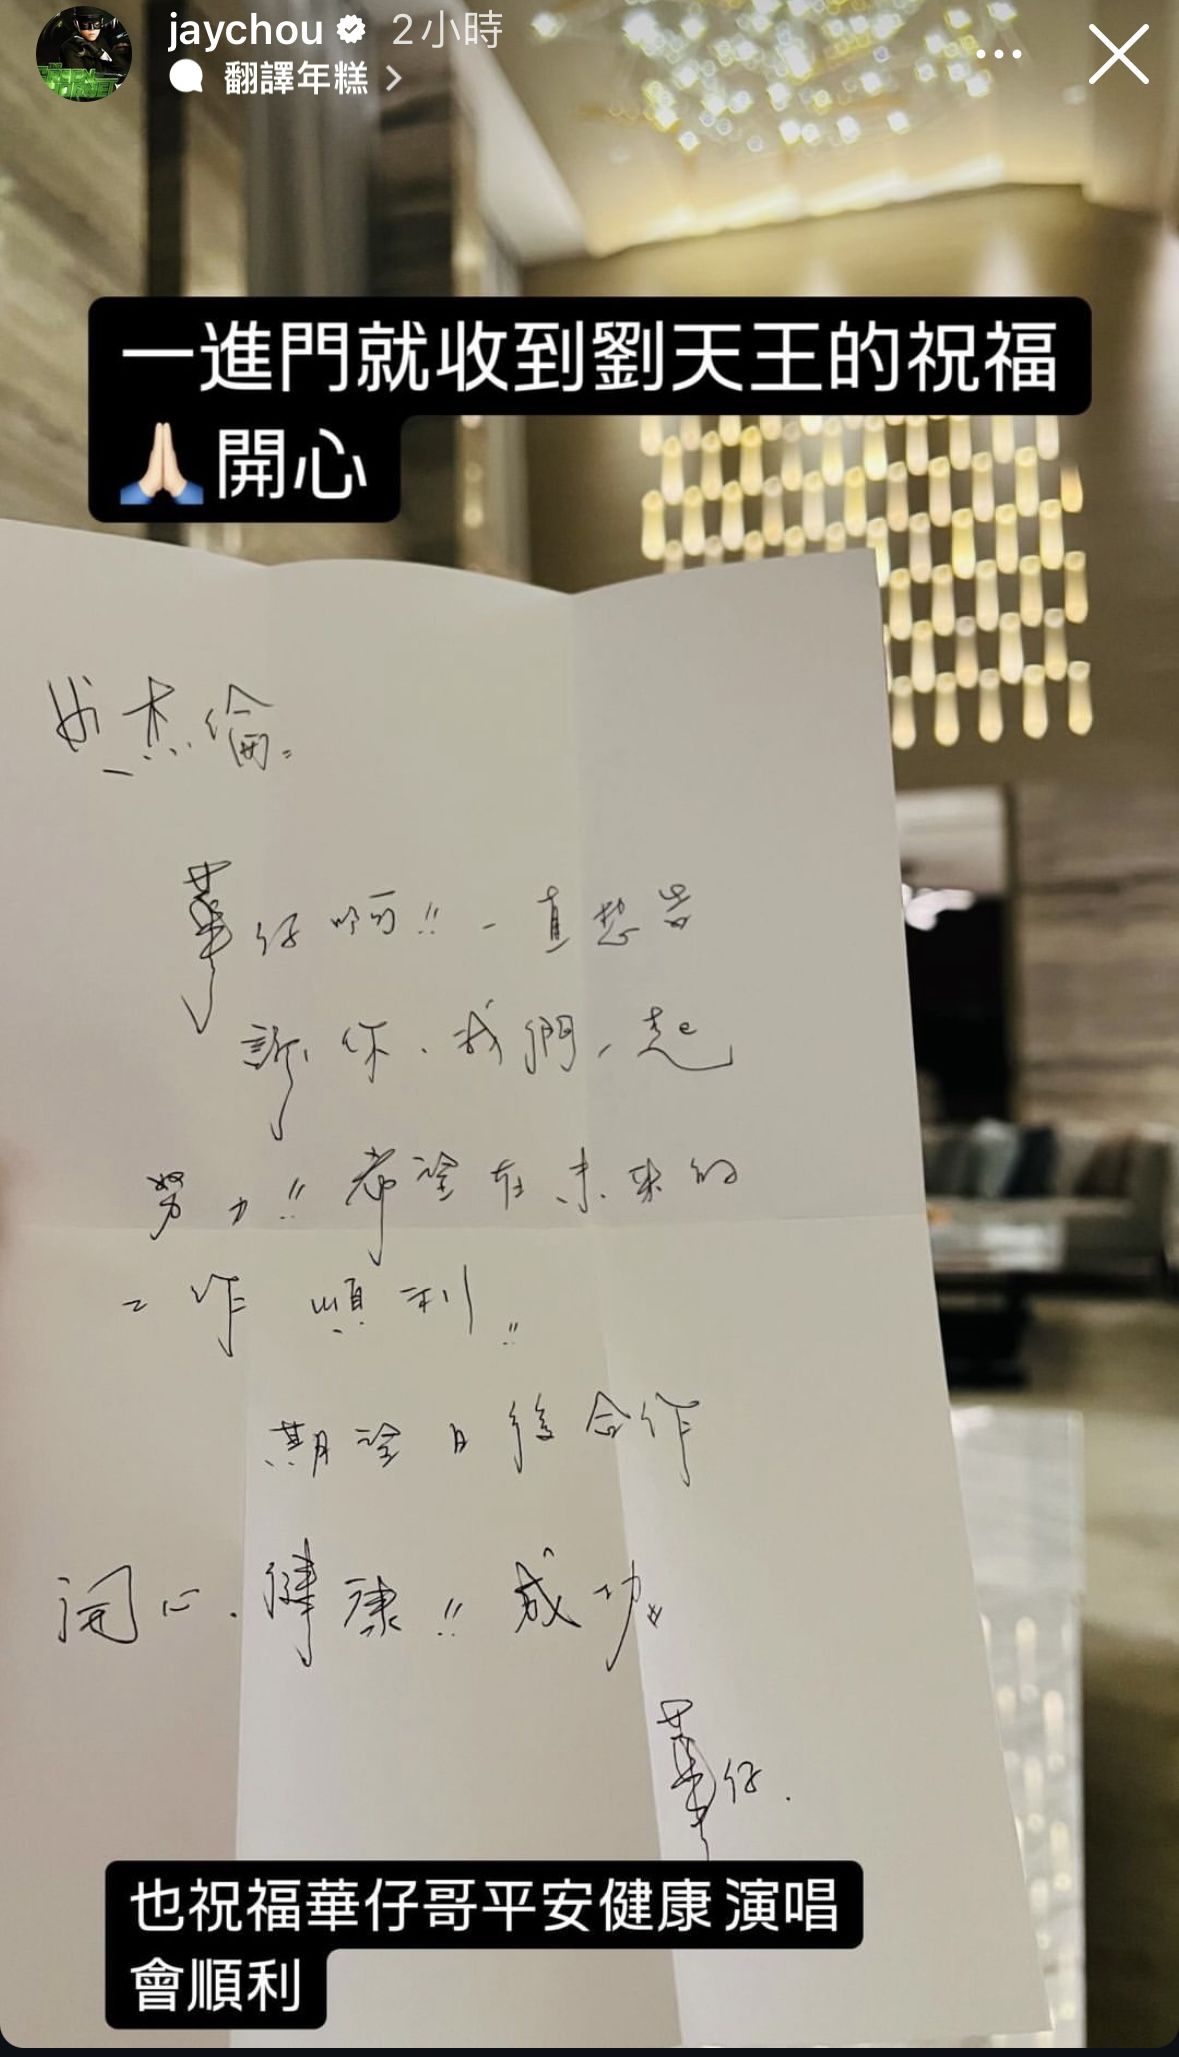 jaychou 2小時
翻譯年糕
一進門就收到劉天王的祝福
🙏🏻開心
杰倫
華仔啊!! 一直想告
訴你、我們一起
努力!! 希望在未來的
工作順利!!
期望日後合作
開心、健康!! 成功
華仔.
也祝福華仔哥平安健康 演唱
會順利